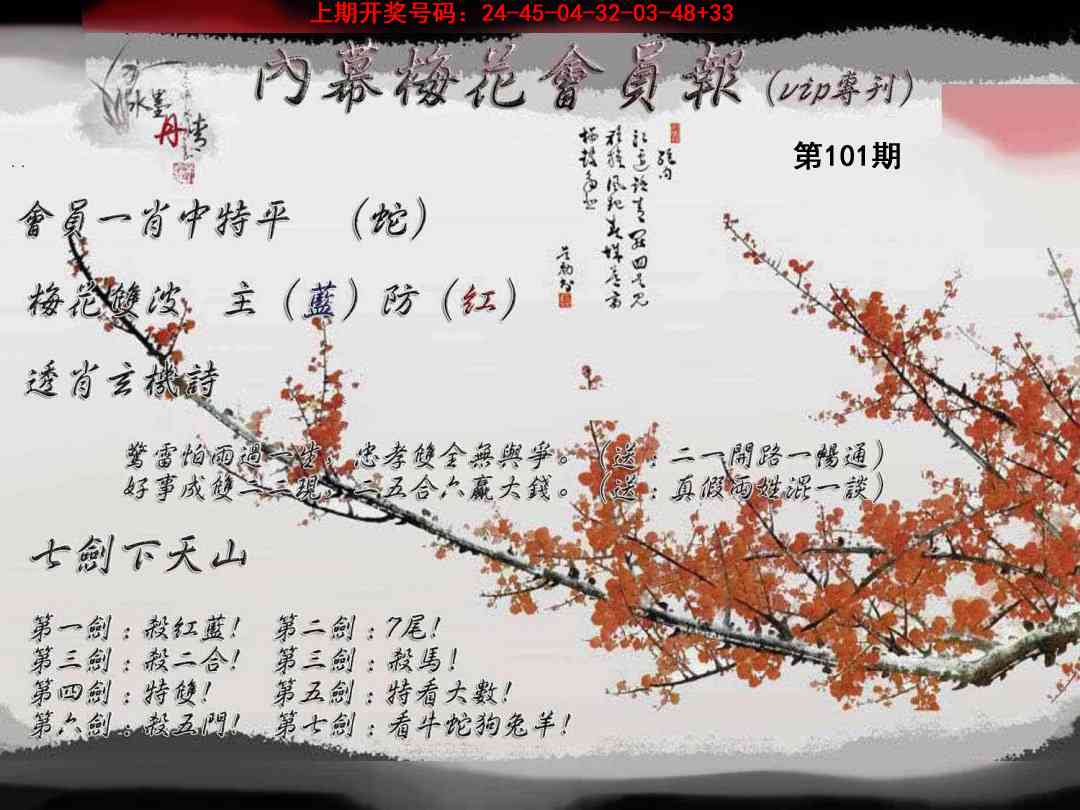 上期开奖号码：24-45-04-32-03-48+33
內幕梅花會員報（vip專刊）
水墨
丹青
第101期
會員一肖中特平 （蛇）
梅花雙波 主（藍）防（红）
透肖玄機詩
驚雷怕雨過一生，忠孝雙全無與爭。（送：二一開路一暢通）
好事成雙二三現，二五合六贏大錢。（送：真假两姓混一談）
七劍下天山
第一劍：殺红藍！ 第二劍：7尾！
第三劍：殺二合！ 第三劍：殺馬！
第四劍：特雙！ 第五劍：特看大數！
第六劍：殺五門！ 第七劍：看牛蛇狗兔羊！